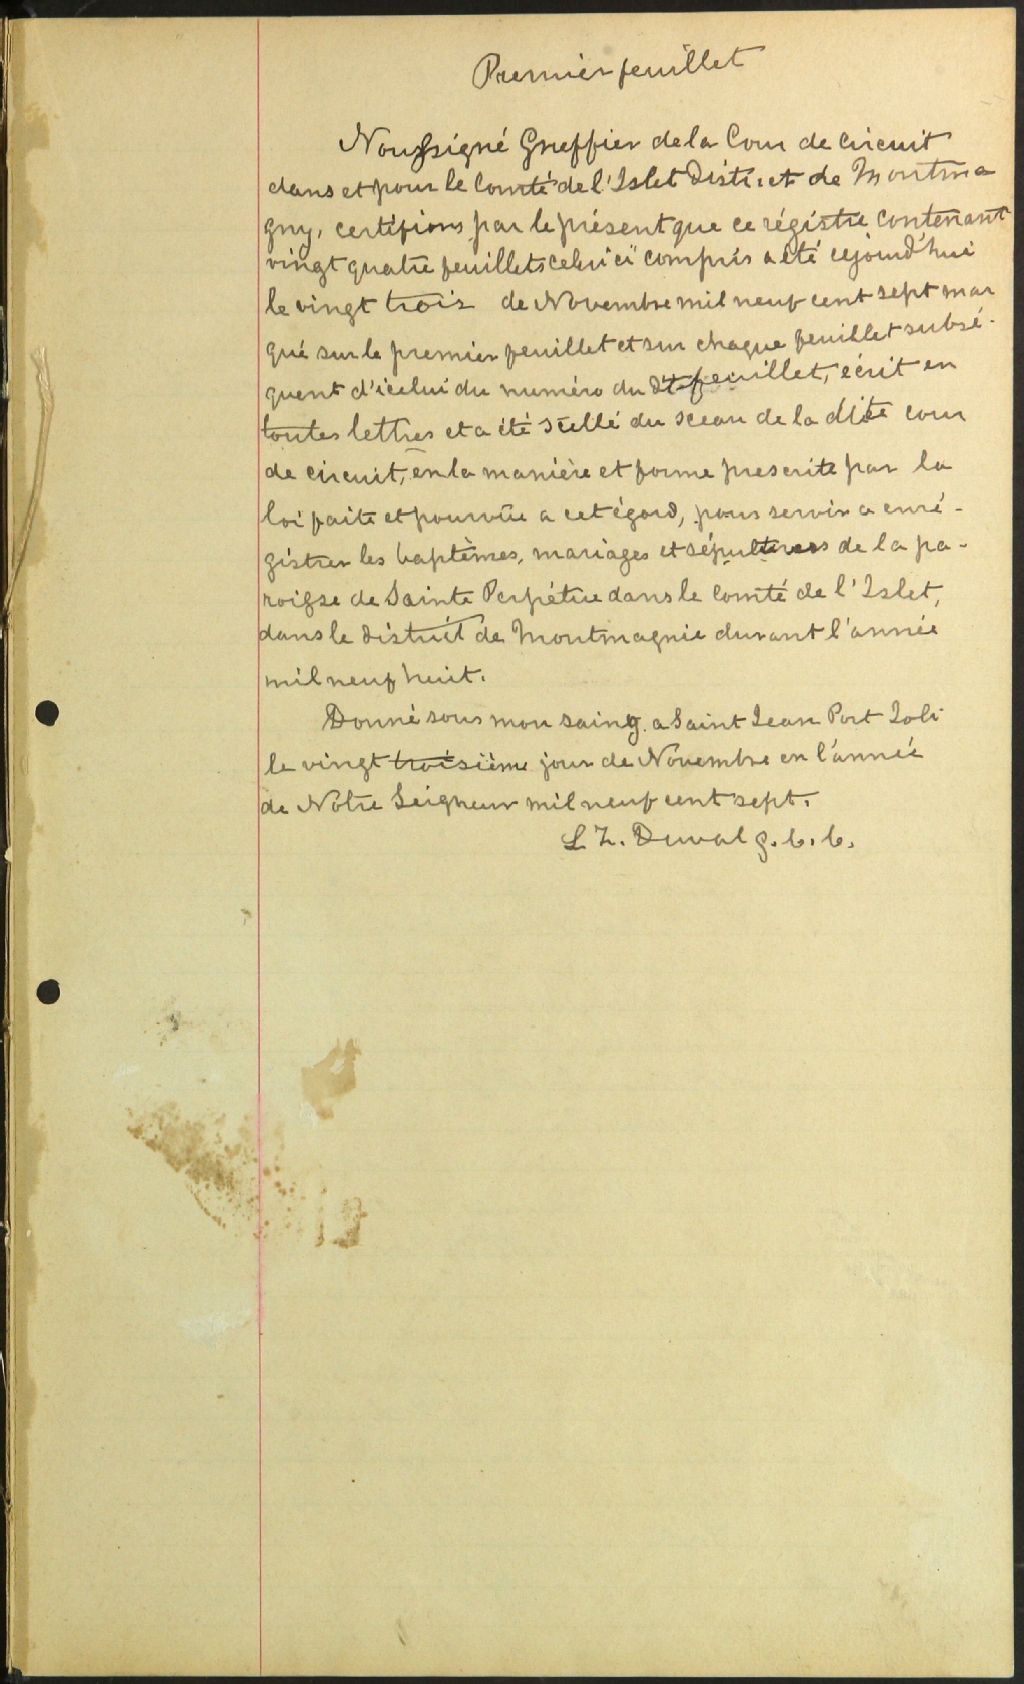 Premier feuillet
Nous ssigné Greffier de la Cour de Circuit
dans et pour le Comté de l'Islet District de Montma
gny, certifions par le présent que ce régistre contenant
vingt quatre feuillets celui ci compris a été cejourd'hui
le vingt trois de Novembre mil neuf cent sept mar
qué sur le premier feuillet et sur chaque feuillet subsé-
quent d'icelui du numéro du dit feuillet, écrit en
toutes lettres et a été scellé du sceau de la dite cour
de circuit, en la manière et forme prescrite par la
loi faite et pourvue a cet égard, pour servir a enré-
gistrer les baptêmes, mariages et sépultures de la pa-
roisse de Sainte Perpétue dans le Comté de l'Islet,
dans le district de Montmagnie durant l'année
mil neuf huit.
Donné sous mon saing a Saint Jean Port Joli
le vingt troisième jour de Novembre en l'année
de Notre Seigneur mil neuf cent sept.
L Z. Duval g. c. c.